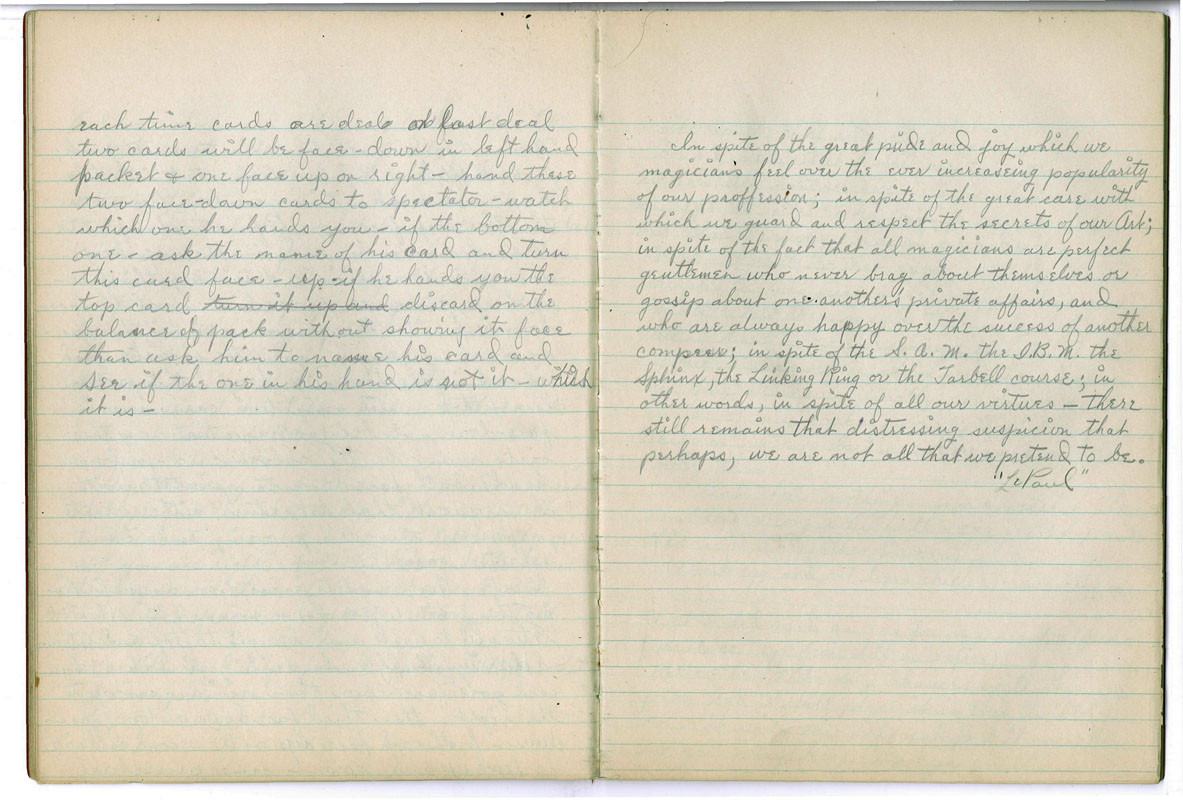 each time cards are deal on last deal
two cards will be face-down in left hand
packet & one face up on right - hand these
two face-down cards to spectator - watch
which one he hands you - if the bottom
one - ask the name of his card and turn
this card face - up - if he hands you the
top card, turn it up and discard on the
balance of pack without showing its face
than ask him to name his card and
see if the one in his hand is not it - which
it is -
In spite of the great pride and joy which we
magicians feel over the ever increaseing popularity
of our proffession; in spite of the great care with
which we guard and respect the secrets of our Art;
in spite of the fact that all magicians are perfect
gentlemen who never brag about themselves or
gossip about one anothers private affairs, and
who are always happy over the success of another
compeer; in spite of the S. A. M. the I. B. M. the
Sphinx, the Linking Ring or the Tarbell course; in
other words, in spite of all our virtues — there
still remains that distressing suspicion that
perhaps, we are not all that we pretend to be.
"LePaul"